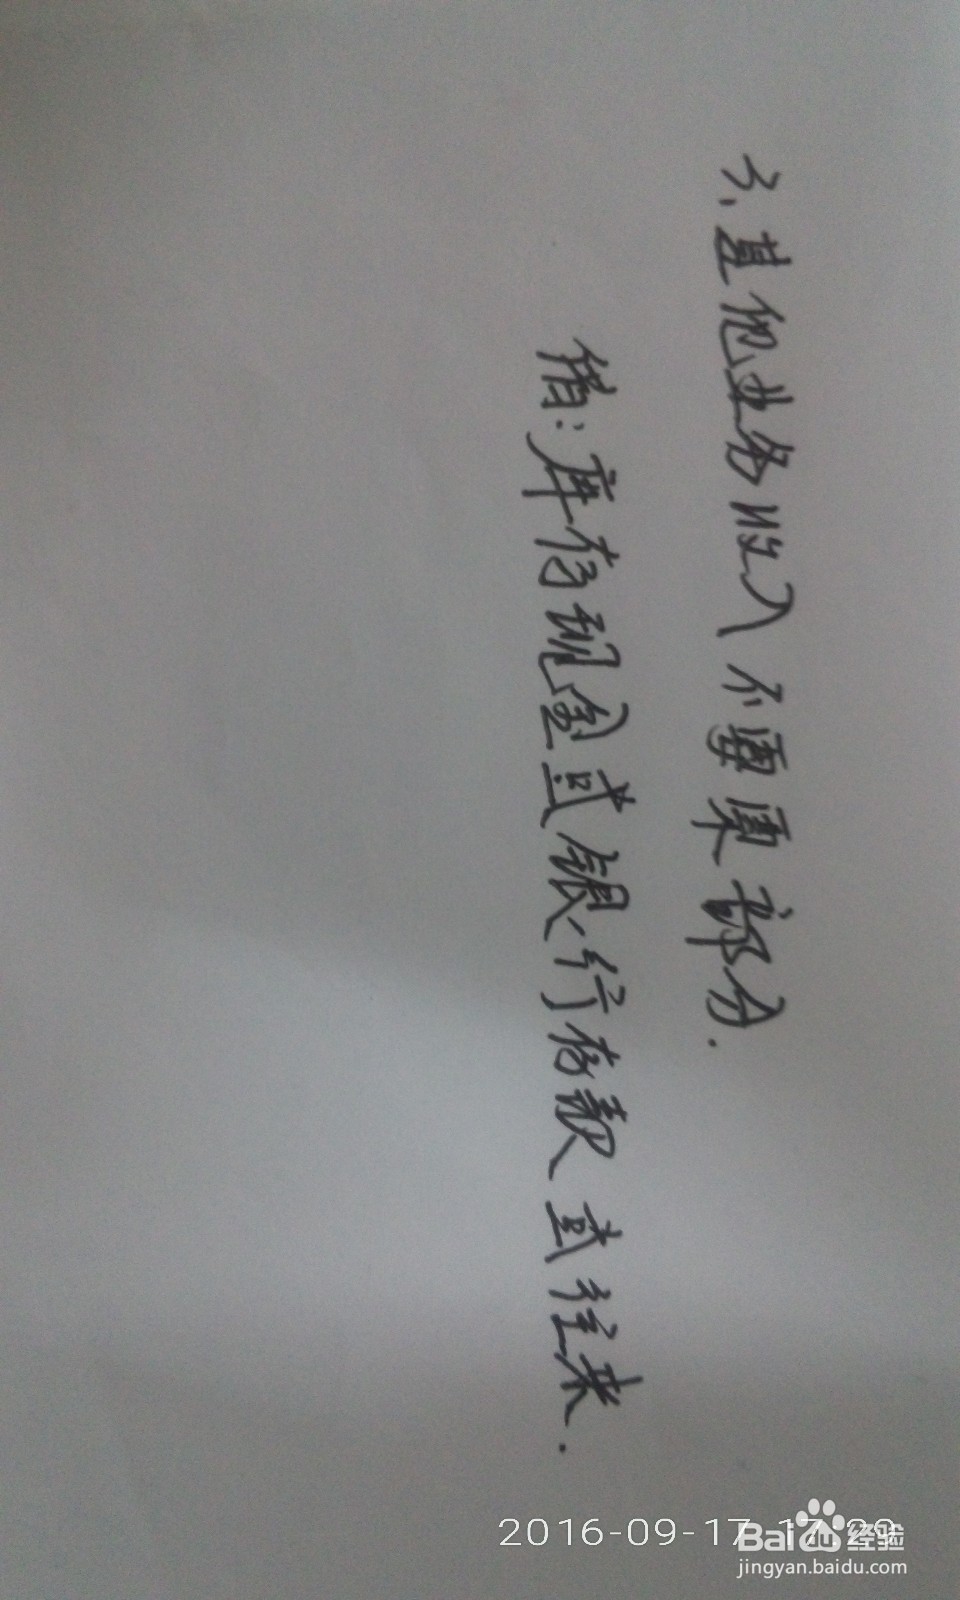 3、其他业务收入不要票部分.
借:库存现金或银行存款或往来.
2016-09-17 17:29
Baidu 经验
jingyan.baidu.com